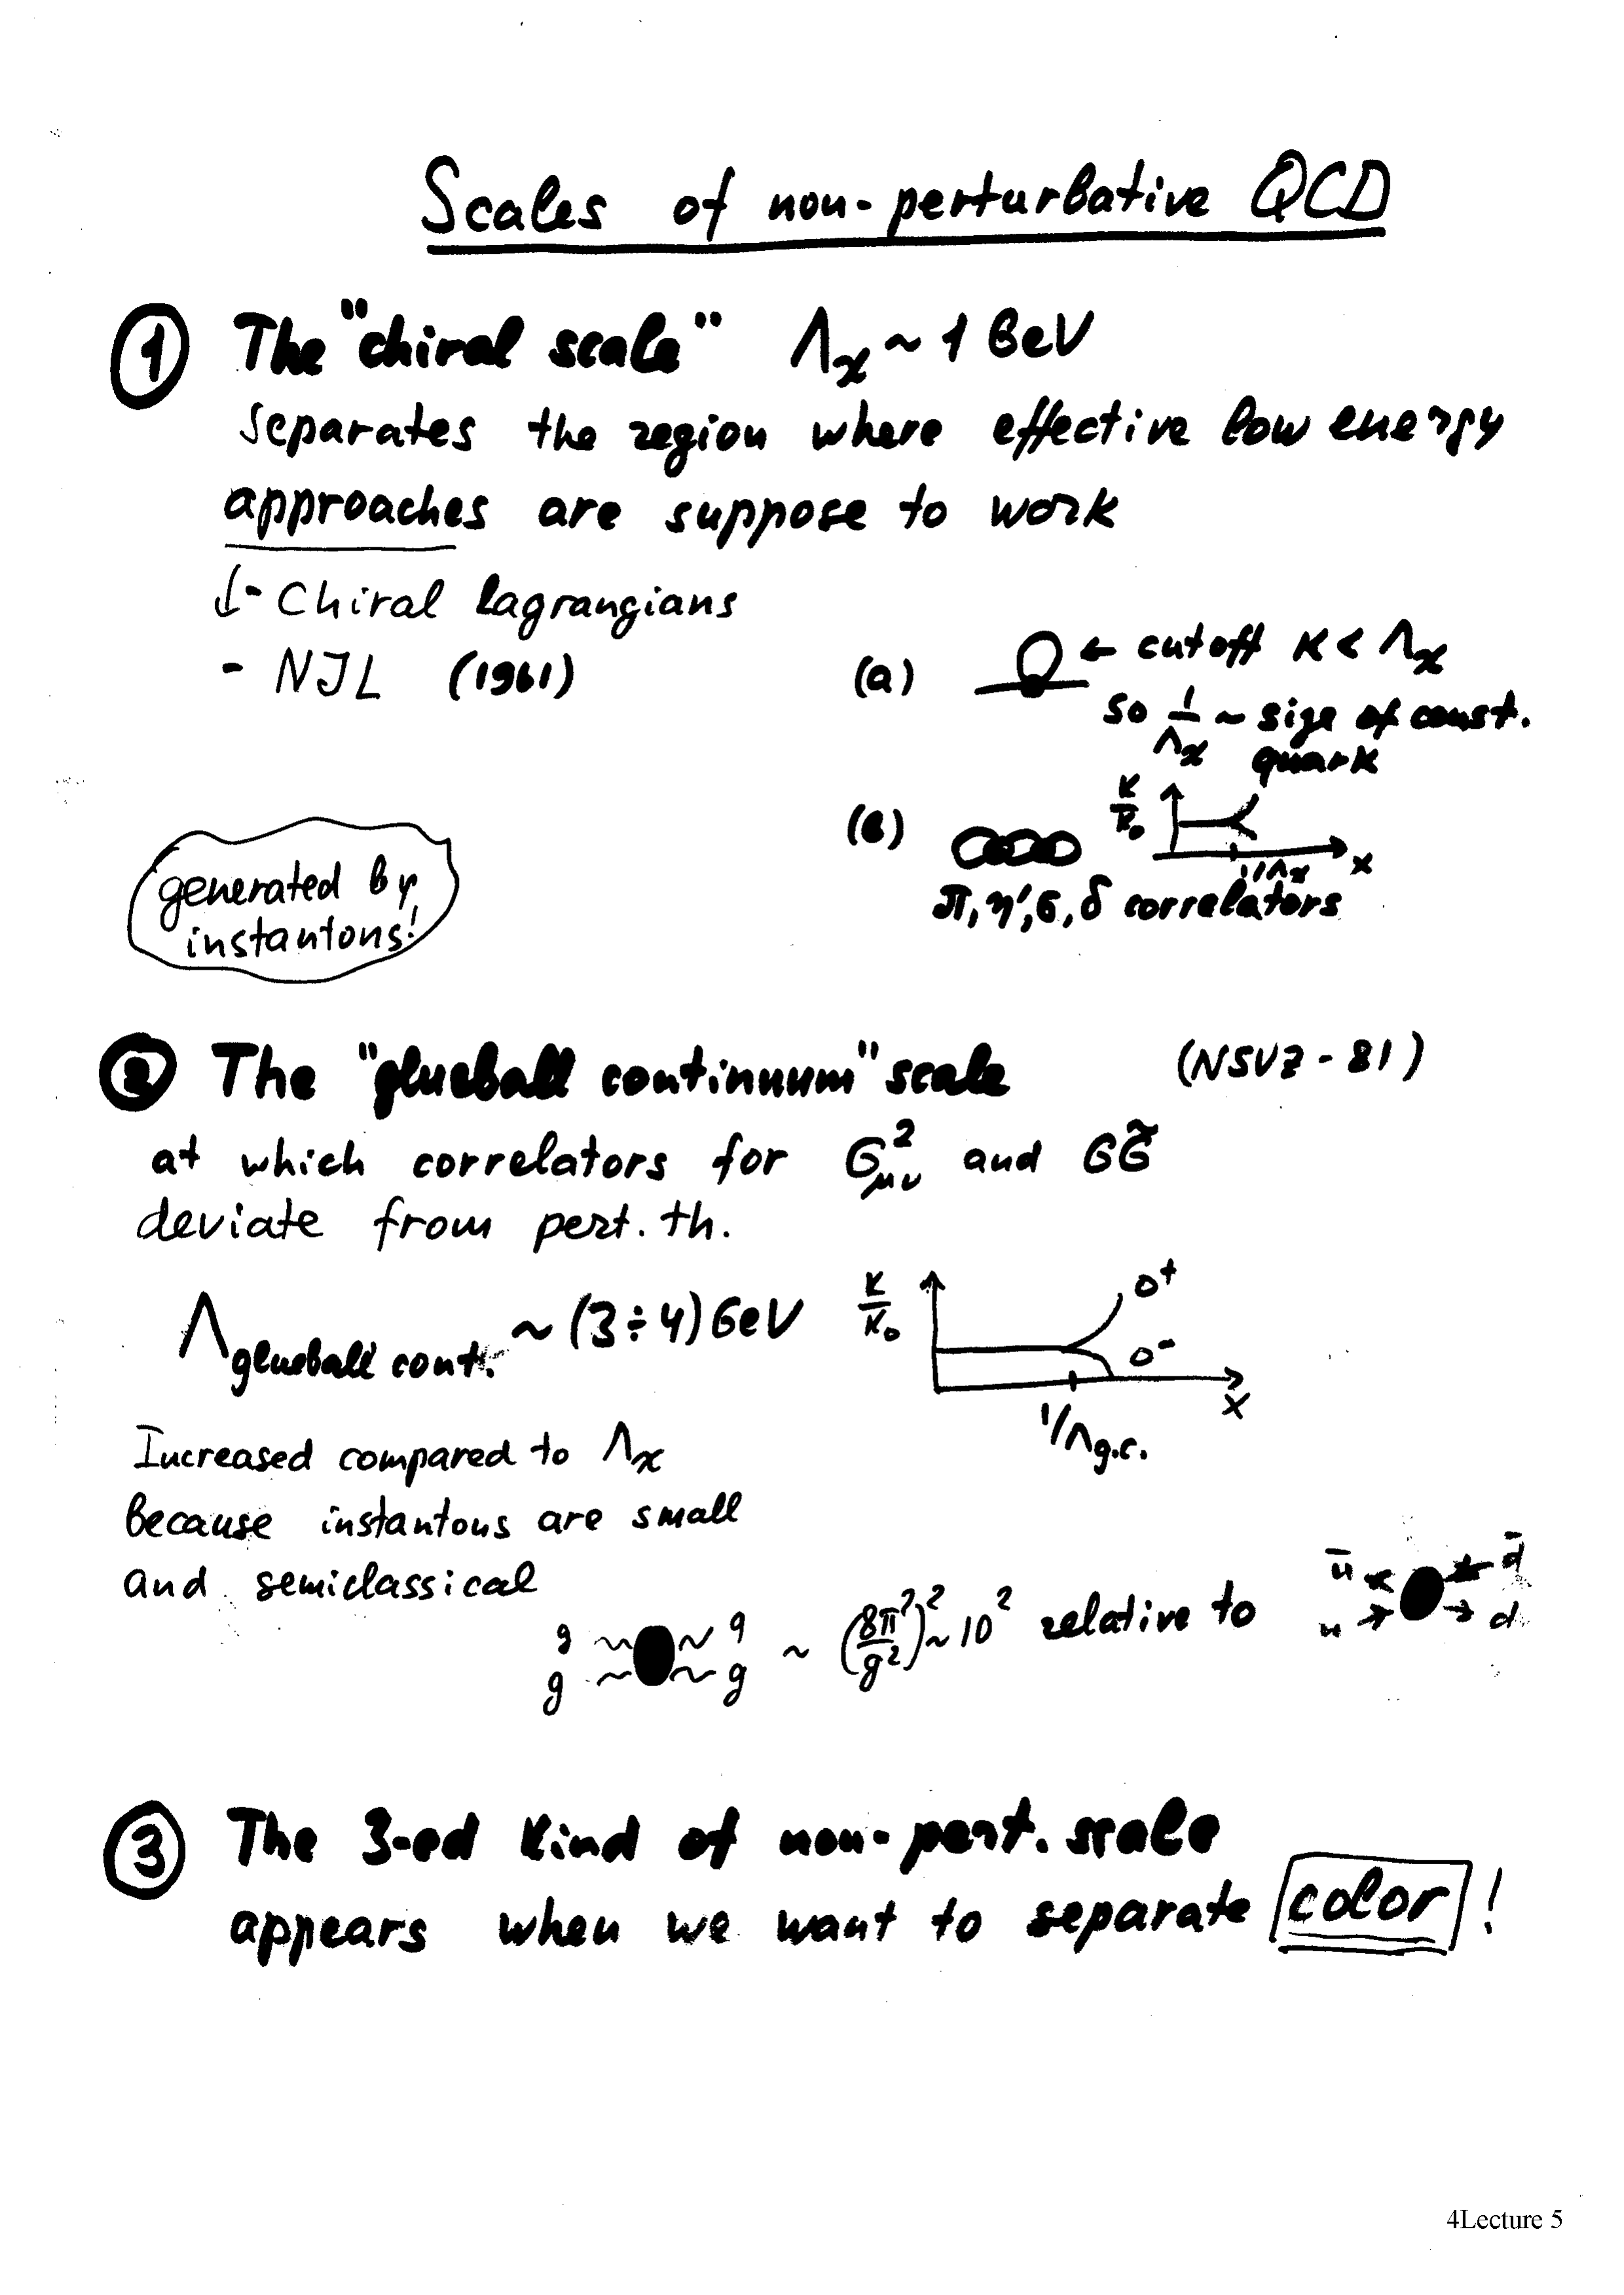 Scales of non-perturbative QCD
① The "chiral scale" Λχ ~ 1 GeV
separates the region where effective low energy
approaches are suppose to work
↓- Chiral lagrangians
- NJL (1961)
(a) ← cutoff K < Λχ
so 1/Λχ ~ size of const.
quark
(b) K/K₀ 1/Λχ x
π, η', σ, δ correlators
generated by
instantons!
② The "glueball continuum" scale (NSVZ-81)
at which correlators for G²μν and GG̃
deviate from pert. th.
Λ glueball cont. ~ (3÷4) GeV K/K₀ 0⁺ 0⁻ x
1/Λg.c.
Increased compared to Λχ
because instantons are small
and semiclassical
g g g g ~ (8π²/g²)² ~ 10² relative to ū u d̄ d
③ The 3-ed kind of non-pert. scale
appears when we want to separate color !
4Lecture 5